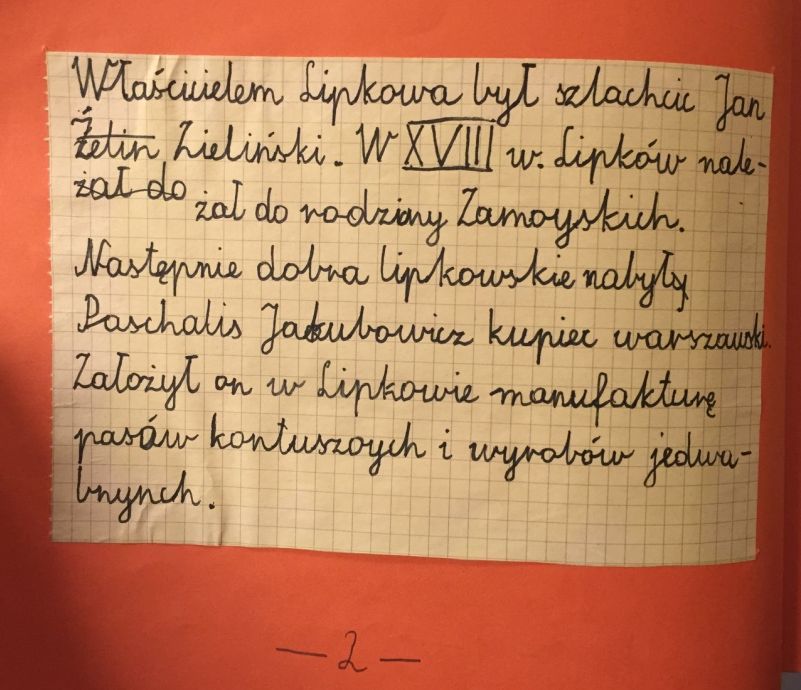 Właścicielem Lipkowa był szlachcic Jan
Żelin Zieliński. W XVIII w. Lipków nale-
żał do żał do rodziny Zamoyskich.
Następnie dobra lipkowskie nabyły
Paschalis Jakubowicz kupiec warszawski.
Założył on w Lipkowie manufakturę
pasów kontuszoych i wyrobów jedwa-
bnynch.
— 2 —